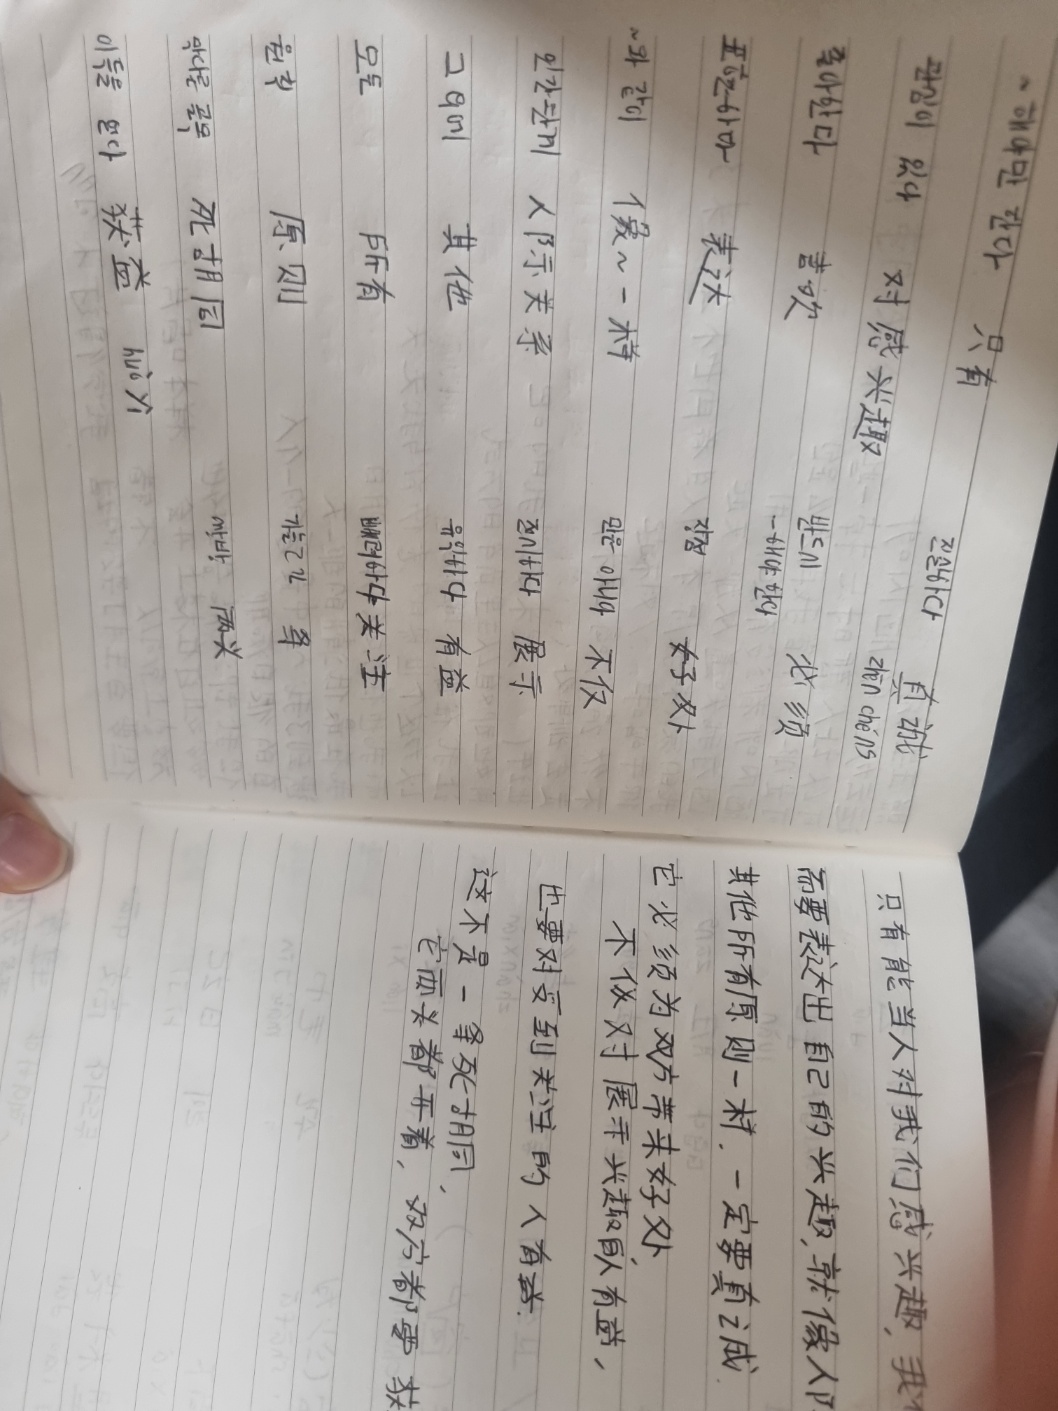 ~해야만 한다 只有
관심이 있다 对感兴趣
좋아한다 喜欢
표현하다 表达
~와 같이 像~一样
인간관계 人际关系
그 외에 其他
모든 所有
원칙 原则
막다른 골목 死胡同
이득을 얻다 获益 huò yì
진실하다 真诚 zhēn chéng
반드시 ~해야 한다 必须
장점 好处
만은 아니다 不仅
전시하다 展示
유익하다 有益
배려하다 关注
가늘고 긴 条
쌍방, 两头
只有能当人对我们感兴趣,我们
需要表达出自己的兴趣,就像人际
其他所有原则一样,一定要真诚.
它必须为双方带来好处
不仅对展示兴趣的人有益,
也要对受到关注的人有益.
这不是一条死胡同,
它两头都开着,双方都要获